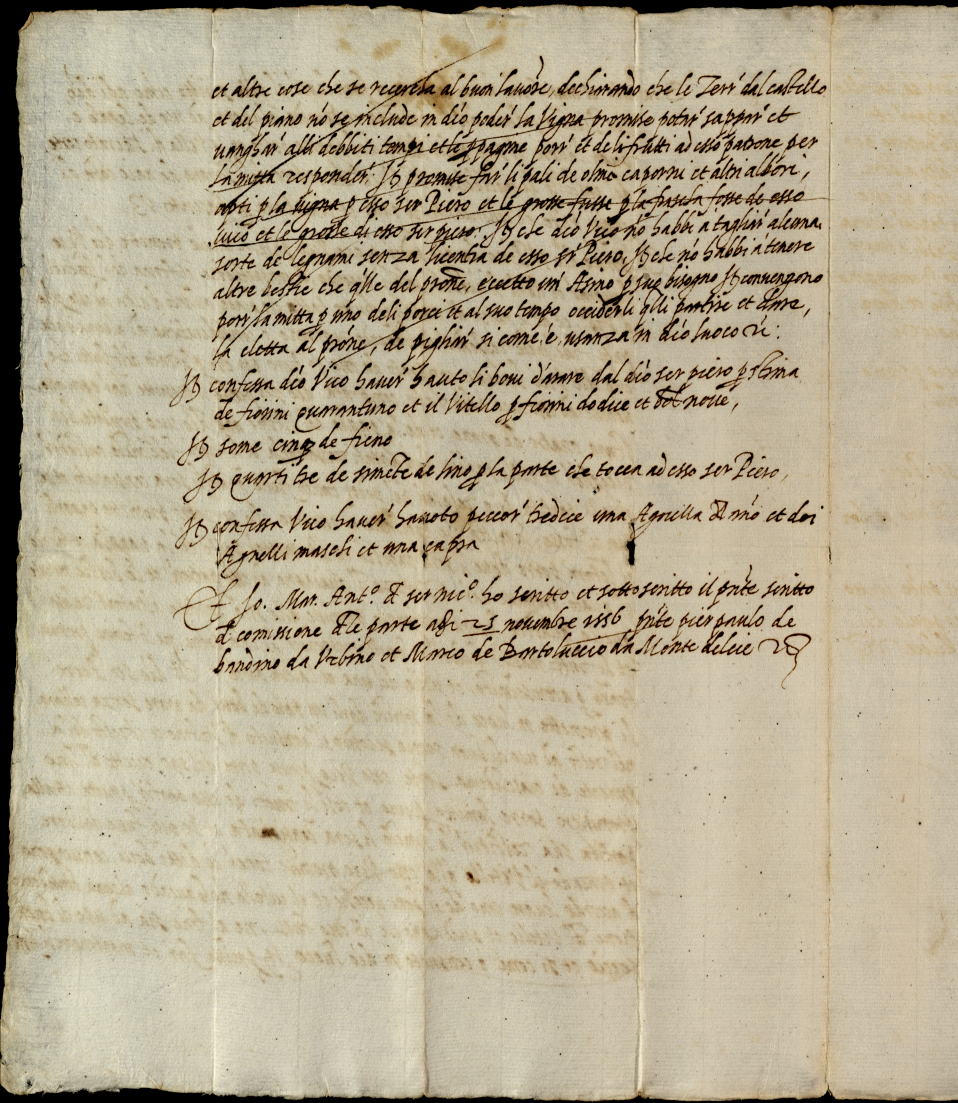 et altre cose che se recercha al buon lavore, dechiarando che le Terr' dal castello
et del piano nó se include in dco poder' la Vigna promise potar' sappar' et
vanghar' alli debbiti tempi et le spagine porr' et de li frutti ad esso patrone per
la mitta responder'. It promise far li pali de olmo caporni et altri albori,
atti p la vigna p esso ser Piero et le grosse fusse p la fascla fosse de esso
Vico et le grosse di esso ser piero. It che dco Vico nó habbi a tagliar' alcuna
sorte de legnami senza licentia de esso sr Piero, It che nó habbi a tenere
altre bestie che qlle del prone, eccetto un' Asino p suo bisogno It convengono
porr' la mitta p uno deli porci et al suo tempo occiderli qlli partire et dare,
la eletta al prone, de pigliar' si come é usanza in dco luoco rc:
It confessa dco Vico haver' hauto li bovi d'arare dal dco ser piero p stima
de fiorini quarantuno et il Vitello p fiorini dodice et bol nove,
It some cinq de fieno
It quarti tre de simete de lino p la parte che tocca ad esso ser Piero,
It confessa Vico haver' havoto pecor' tredice una Agniella d'ano et doi
Agnelli maschi et una capra
Et Io. Mar. Anto. d ser nico. ho scritto et sottoscritto il pnte scritto
d comissione dle parte adi 21 novembre 1556 pnte pier paulo de
bandino da Urbino et Marco de Bartoluccio da Monte delcie rc